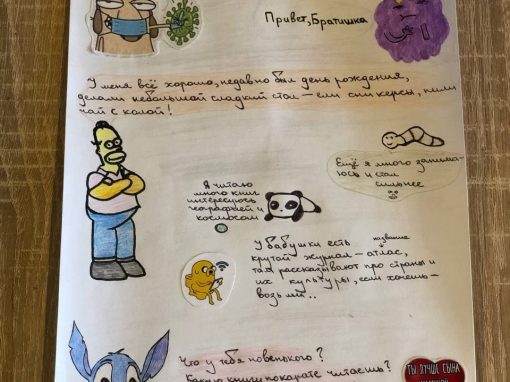 Привет, Братишка
У меня всё хорошо, недавно был день рождения,
делали небольшой сладкий стол – ели сникерсы, пили
чай с колой!
Ещё я много занима-
юсь и стал
сильнее
Я читаю
много книг
интересуюсь
географией и
космосом
У бабушки есть название
крутой журнал – атлас,
там рассказывают про страны и
их культуры, если хочешь –
возьми..
Что у тебя новенького?
Какую книгу читаешь?
ТЫ ЛУЧШЕ СЫНА